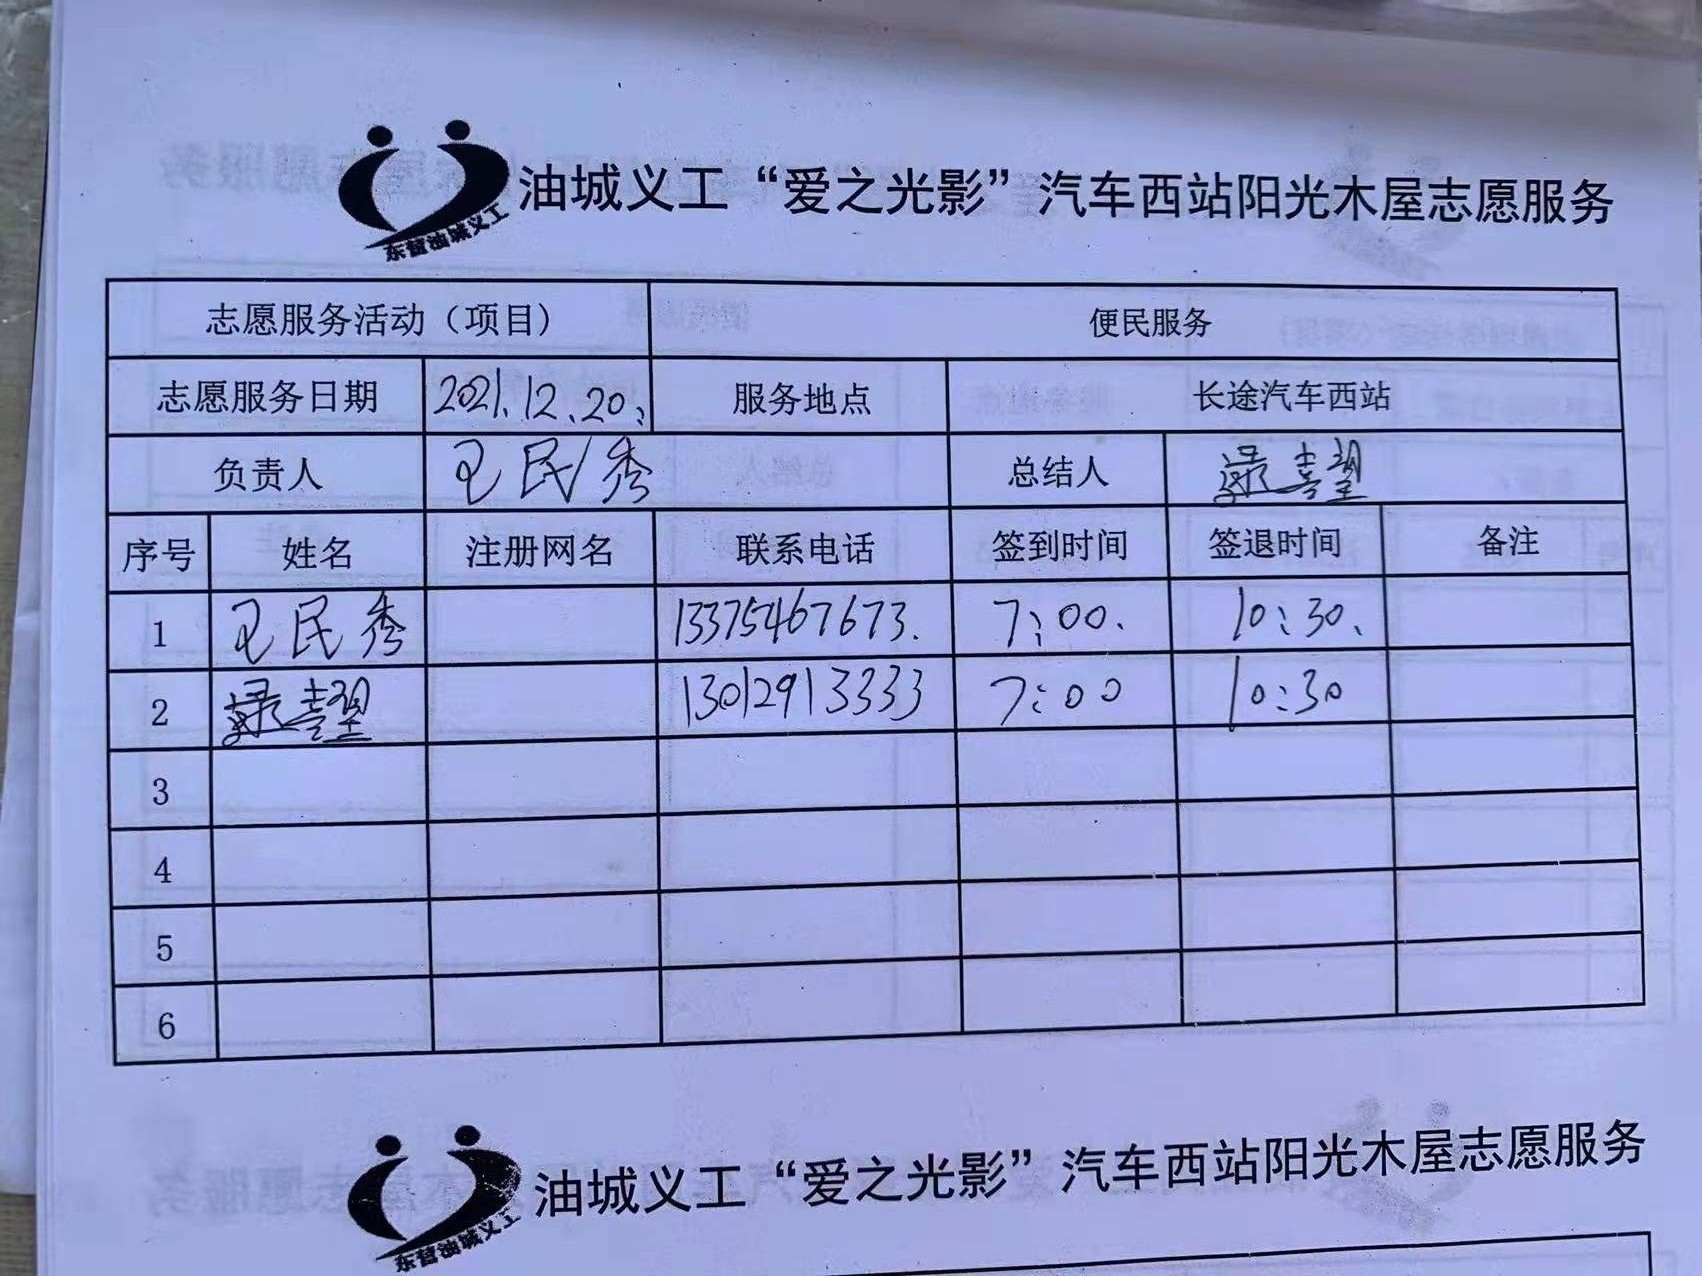 东营油城义工
油城义工“爱之光影”汽车西站阳光木屋志愿服务
志愿服务活动（项目） 便民服务
志愿服务日期 2021.12.20. 服务地点 长途汽车西站
负责人 王民秀 总结人
序号 姓名 注册网名 联系电话 签到时间 签退时间 备注
1 王民秀 13375467673. 7:00. 10:30.
2 13012913333 7:00 10:30
3
4
5
6
东营油城义工
油城义工“爱之光影”汽车西站阳光木屋志愿服务